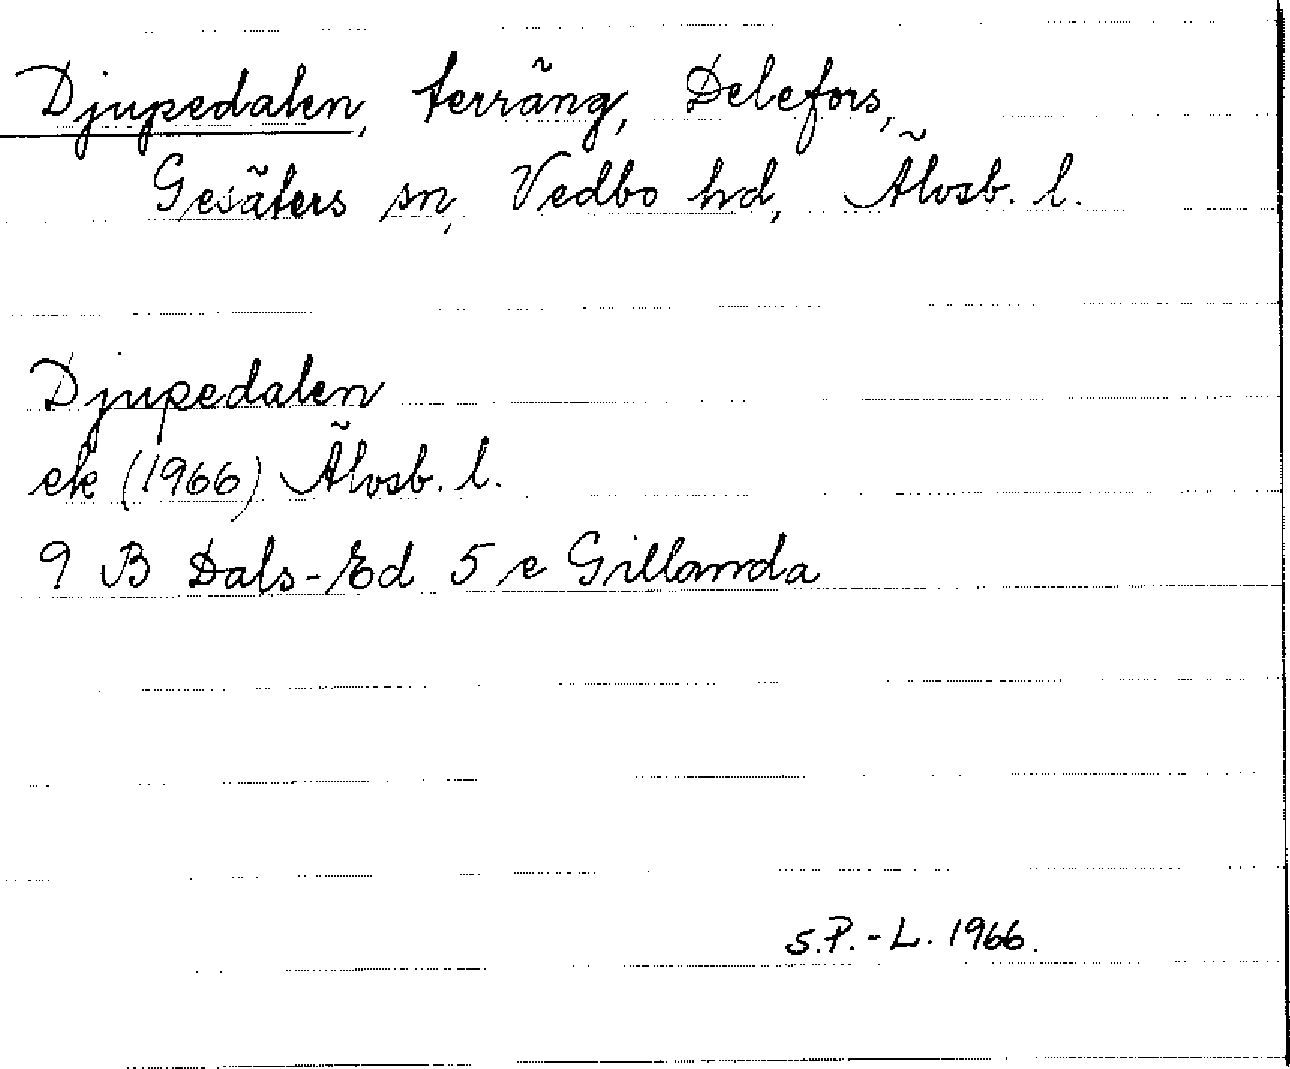 Djupedalen, terräng, Delefors,
Gesäters sn, Vedbo hd, Älvsb. l.
Djupedalen
ek (1966) Älvsb. l.
9 B Dals-Ed 5 e Gillanda
S.P.-L. 1966.